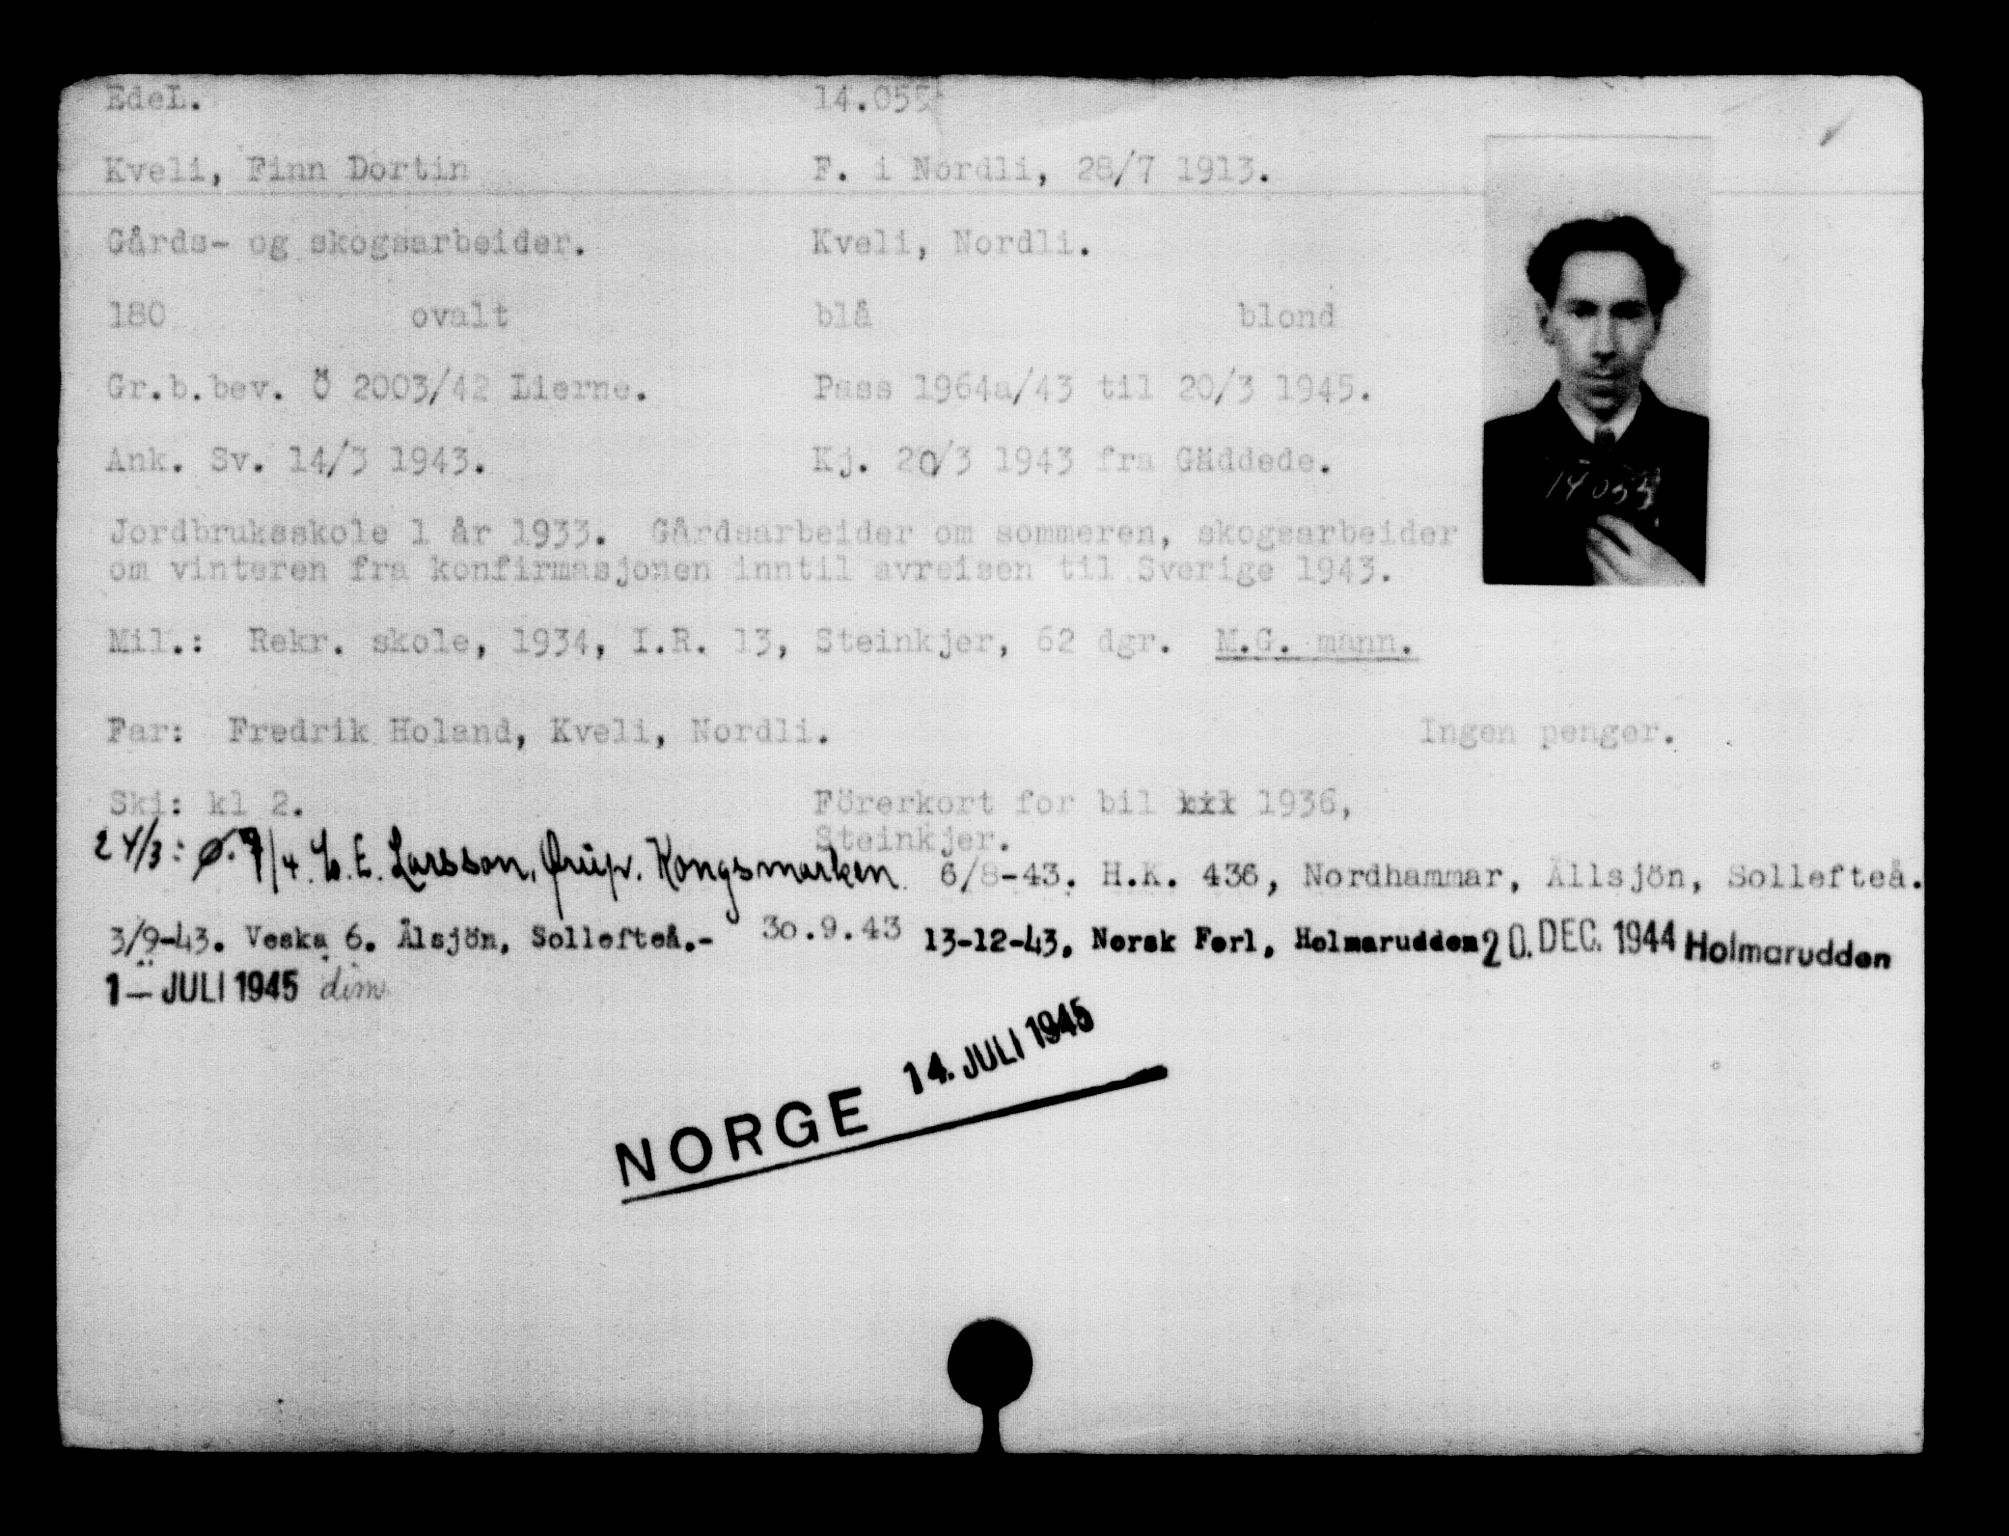 EdeL. 14.055
Kveli, Finn Dortin F. i Nordli, 28/7 1913.
Gårds- og skogsarbeider. Kveli, Nordli.
180 ovalt blå blond
Gr.b.bev. Ö 2003/42 Lierne. Pass 1964a/43 til 20/3 1945.
Ank. Sv. 14/3 1943. Kj. 20/3 1943 fra Gäddede.
Jordbruksskole 1 år 1933. Gårdsarbeider om sommeren, skogsarbeider
om vinteren fra konfirmasjonen inntil avreisen til Sverige 1943.
Mil.: Rekr. skole, 1934, I.R. 13, Steinkjer, 62 dgr. M.G. mann.
Far: Fredrik Holand, Kveli, Nordli. Ingen penger.
Ski: kl 2. Förerkort for bil 1936,
Steinkjer.
24/3: Ø. 7/4. E. Larsson, Kongsmarken 6/8-43. H.K. 436, Nordhammar, Ällsjön, Sollefteå.
3/9-43. Veska 6. Älsjön, Sollefteå.- 30.9.43 13-12-43. Norsk Forl, Holmarudden 20. DEC. 1944 Holmarudden
1 – JULI 1945 dim
NORGE 14. JULI 1945